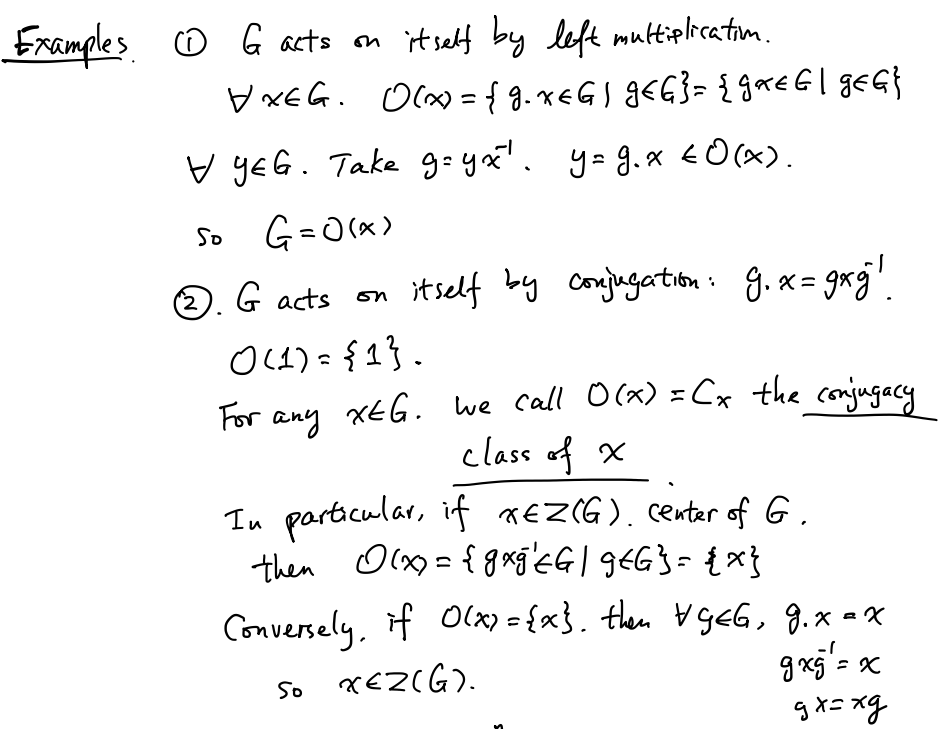 Examples. ① G acts on itself by left multiplication.
∀ x∈G. O(x) = { g.x∈G | g∈G} = { gx∈G | g∈G}
∀ y∈G. Take g = yx⁻¹. y = g.x ∈ O(x).
so G = O(x)
②. G acts on itself by conjugation: g.x = gxg⁻¹.
O(1) = {1}.
For any x∈G. we call O(x) = Cₓ the conjugacy
class of x.
In particular, if x∈Z(G). center of G.
then O(x) = { gxg⁻¹∈G | g∈G} = {x}
Conversely, if O(x) = {x}. then ∀ g∈G, g.x = x
gxg⁻¹ = x
so x∈Z(G).
gx = xg